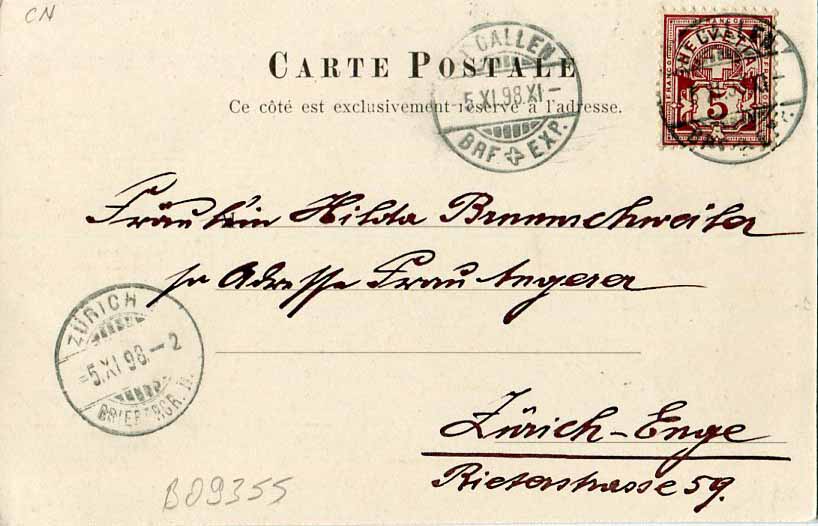 CN
CARTE POSTALE
Ce côté est exclusivement réservé à l'adresse.
GALLEN
5.XI.98.XI-
BRF EXP.
FRANCO
HELVETIA
5
Fräulein Hilda Braunschweiler
pr Adresse Frau Angerer
ZÜRICH
-5.XI.98.-2
BRIEFTRGR. II.
Zürich-Enge
Rieterstrasse 59.
B09355